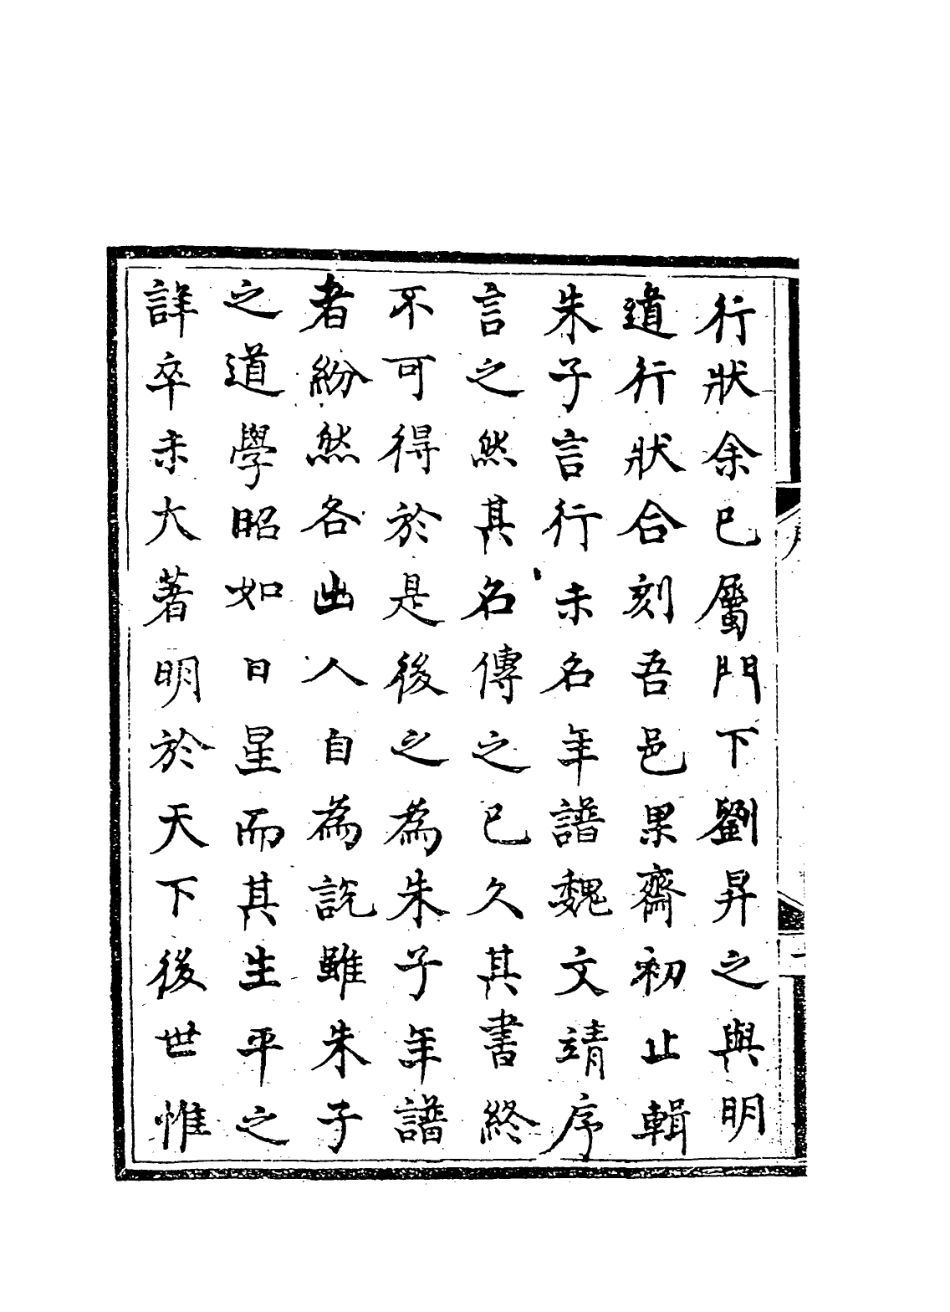 行狀余已屬門下劉昇之與明
道行狀合刻吾邑果齋初止輯
朱子言行未名年譜魏文靖序
言之然其名傳之已久其書終
不可得於是後之為朱子年譜
者紛然各出人自為說雖朱子
之道學昭如日星而其生平之
詳卒未大著明於天下後世惟